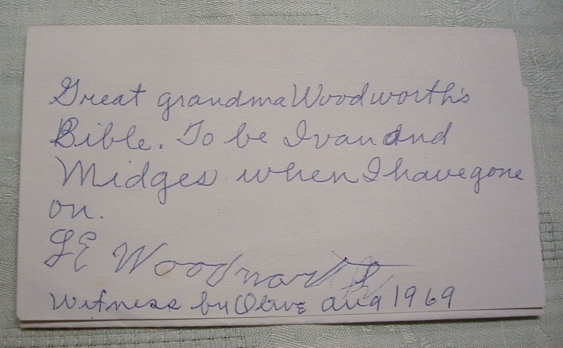 Great grandma Woodworth's
Bible. To be Ivan and
Midges when I have gone
on.
LE Woodworth
Witness by Olive aug 1969